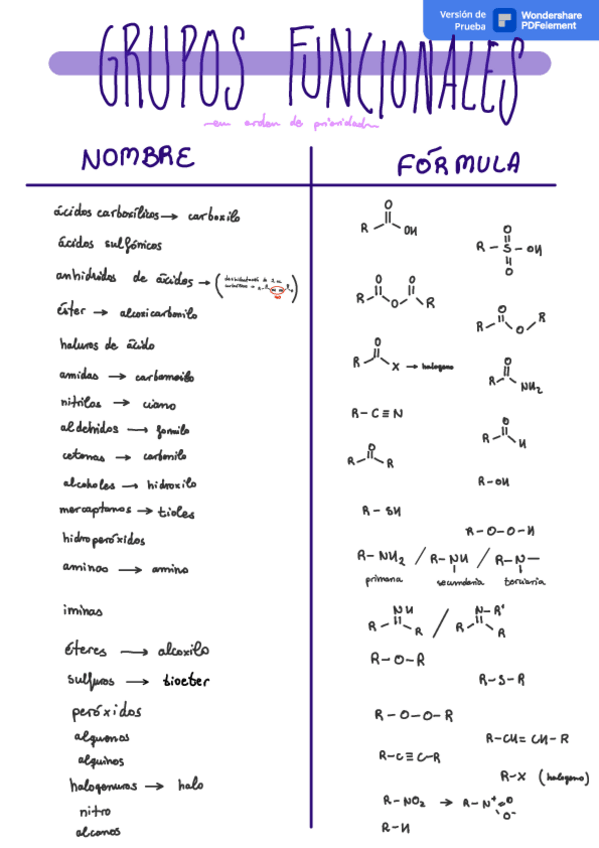 Versión de Prueba
Wondershare PDFelement
GRUPOS FUNCIONALES
en orden de prioridad
NOMBRE
FÓRMULA
ácidos carboxílicos → carboxilo
R-C(=O)-OH
ácidos sulfónicos
R-S(=O)(=O)-OH
anhidridos de ácidos → (
R-C(=O)-O-C(=O)-R
éster → alcoxicarbonilo
R-C(=O)-O-R
haluros de ácido
R-C(=O)-X → halogeno
amidas → carbamoilo
R-C(=O)-NH2
nitrilos → ciano
R-C≡N
aldehídos → formilo
R-C(=O)-H
cetonas → carbonilo
R-C(=O)-R
alcoholes → hidroxilo
R-OH
mercaptanos → tioles
R-SH
hidroperóxidos
R-O-O-H
aminas → amino
R-NH2 / R-NH / R-N-
primaria secundaria terciaria
iminas
NH / N-R'
R R / R R
éteres → alcoxilo
R-O-R
sulfuros → tioeter
R-S-R
peróxidos
R-O-O-R
alquenos
R-CH=CH-R
alquinos
R-C≡C-R
halogenuros → halo
R-X (halogeno)
nitro
R-NO2 → R-N+=O O-
alcanos
R-H